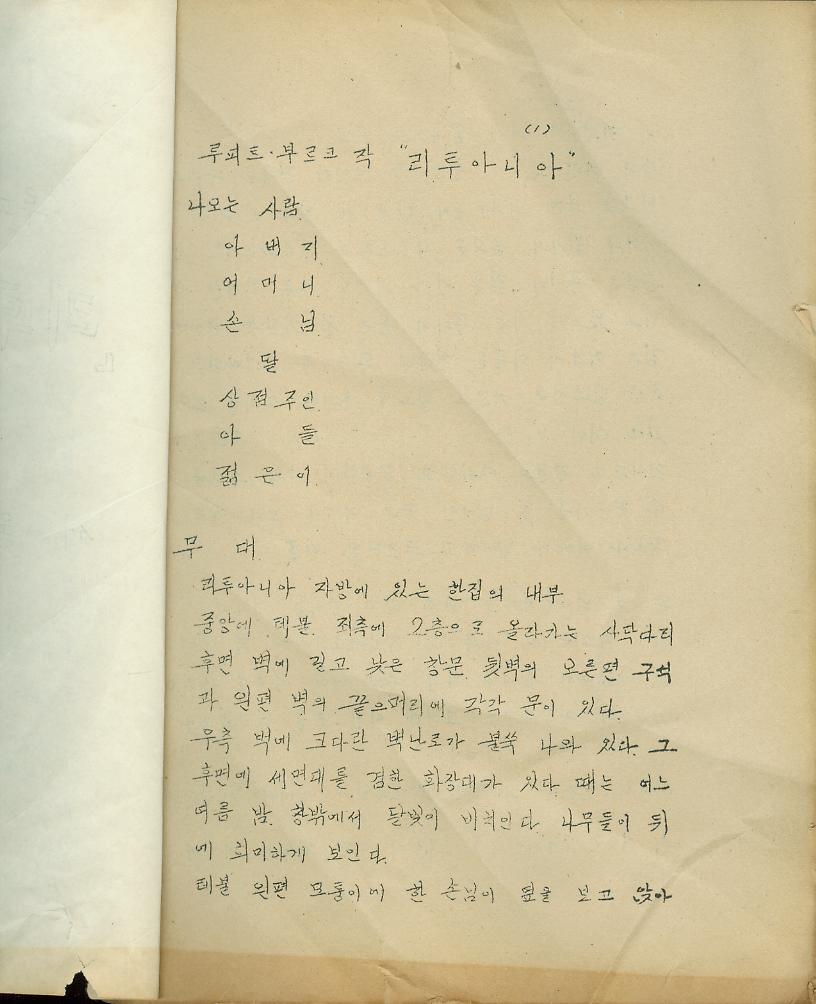 (1)
루피트·부르크 작 "리투아니아"
나오는 사람
아버지
어머니
손 님
딸
상점주인
아 들
젊은이
무 대
리투아니아 지방에 있는 한집의 내부
중앙에 테불. 좌측에 2층으로 올라가는 사닥다리
후면 벽에 길고 낮은 창문 뒷벽의 오른편 구석
과 왼편 벽의 끝으머리에 각각 문이 있다.
우측 벽에 크다란 벽난로가 불쑥 나와 있다. 그
후면에 세면대를 겸한 화장대가 있다 때는 어느
여름 밤. 창밖에서 달빛이 비취인다. 나무들이 뒤
에 희미하게 보인다.
테불 왼편 모퉁이에 한 손님이 옆을 보고 앉아